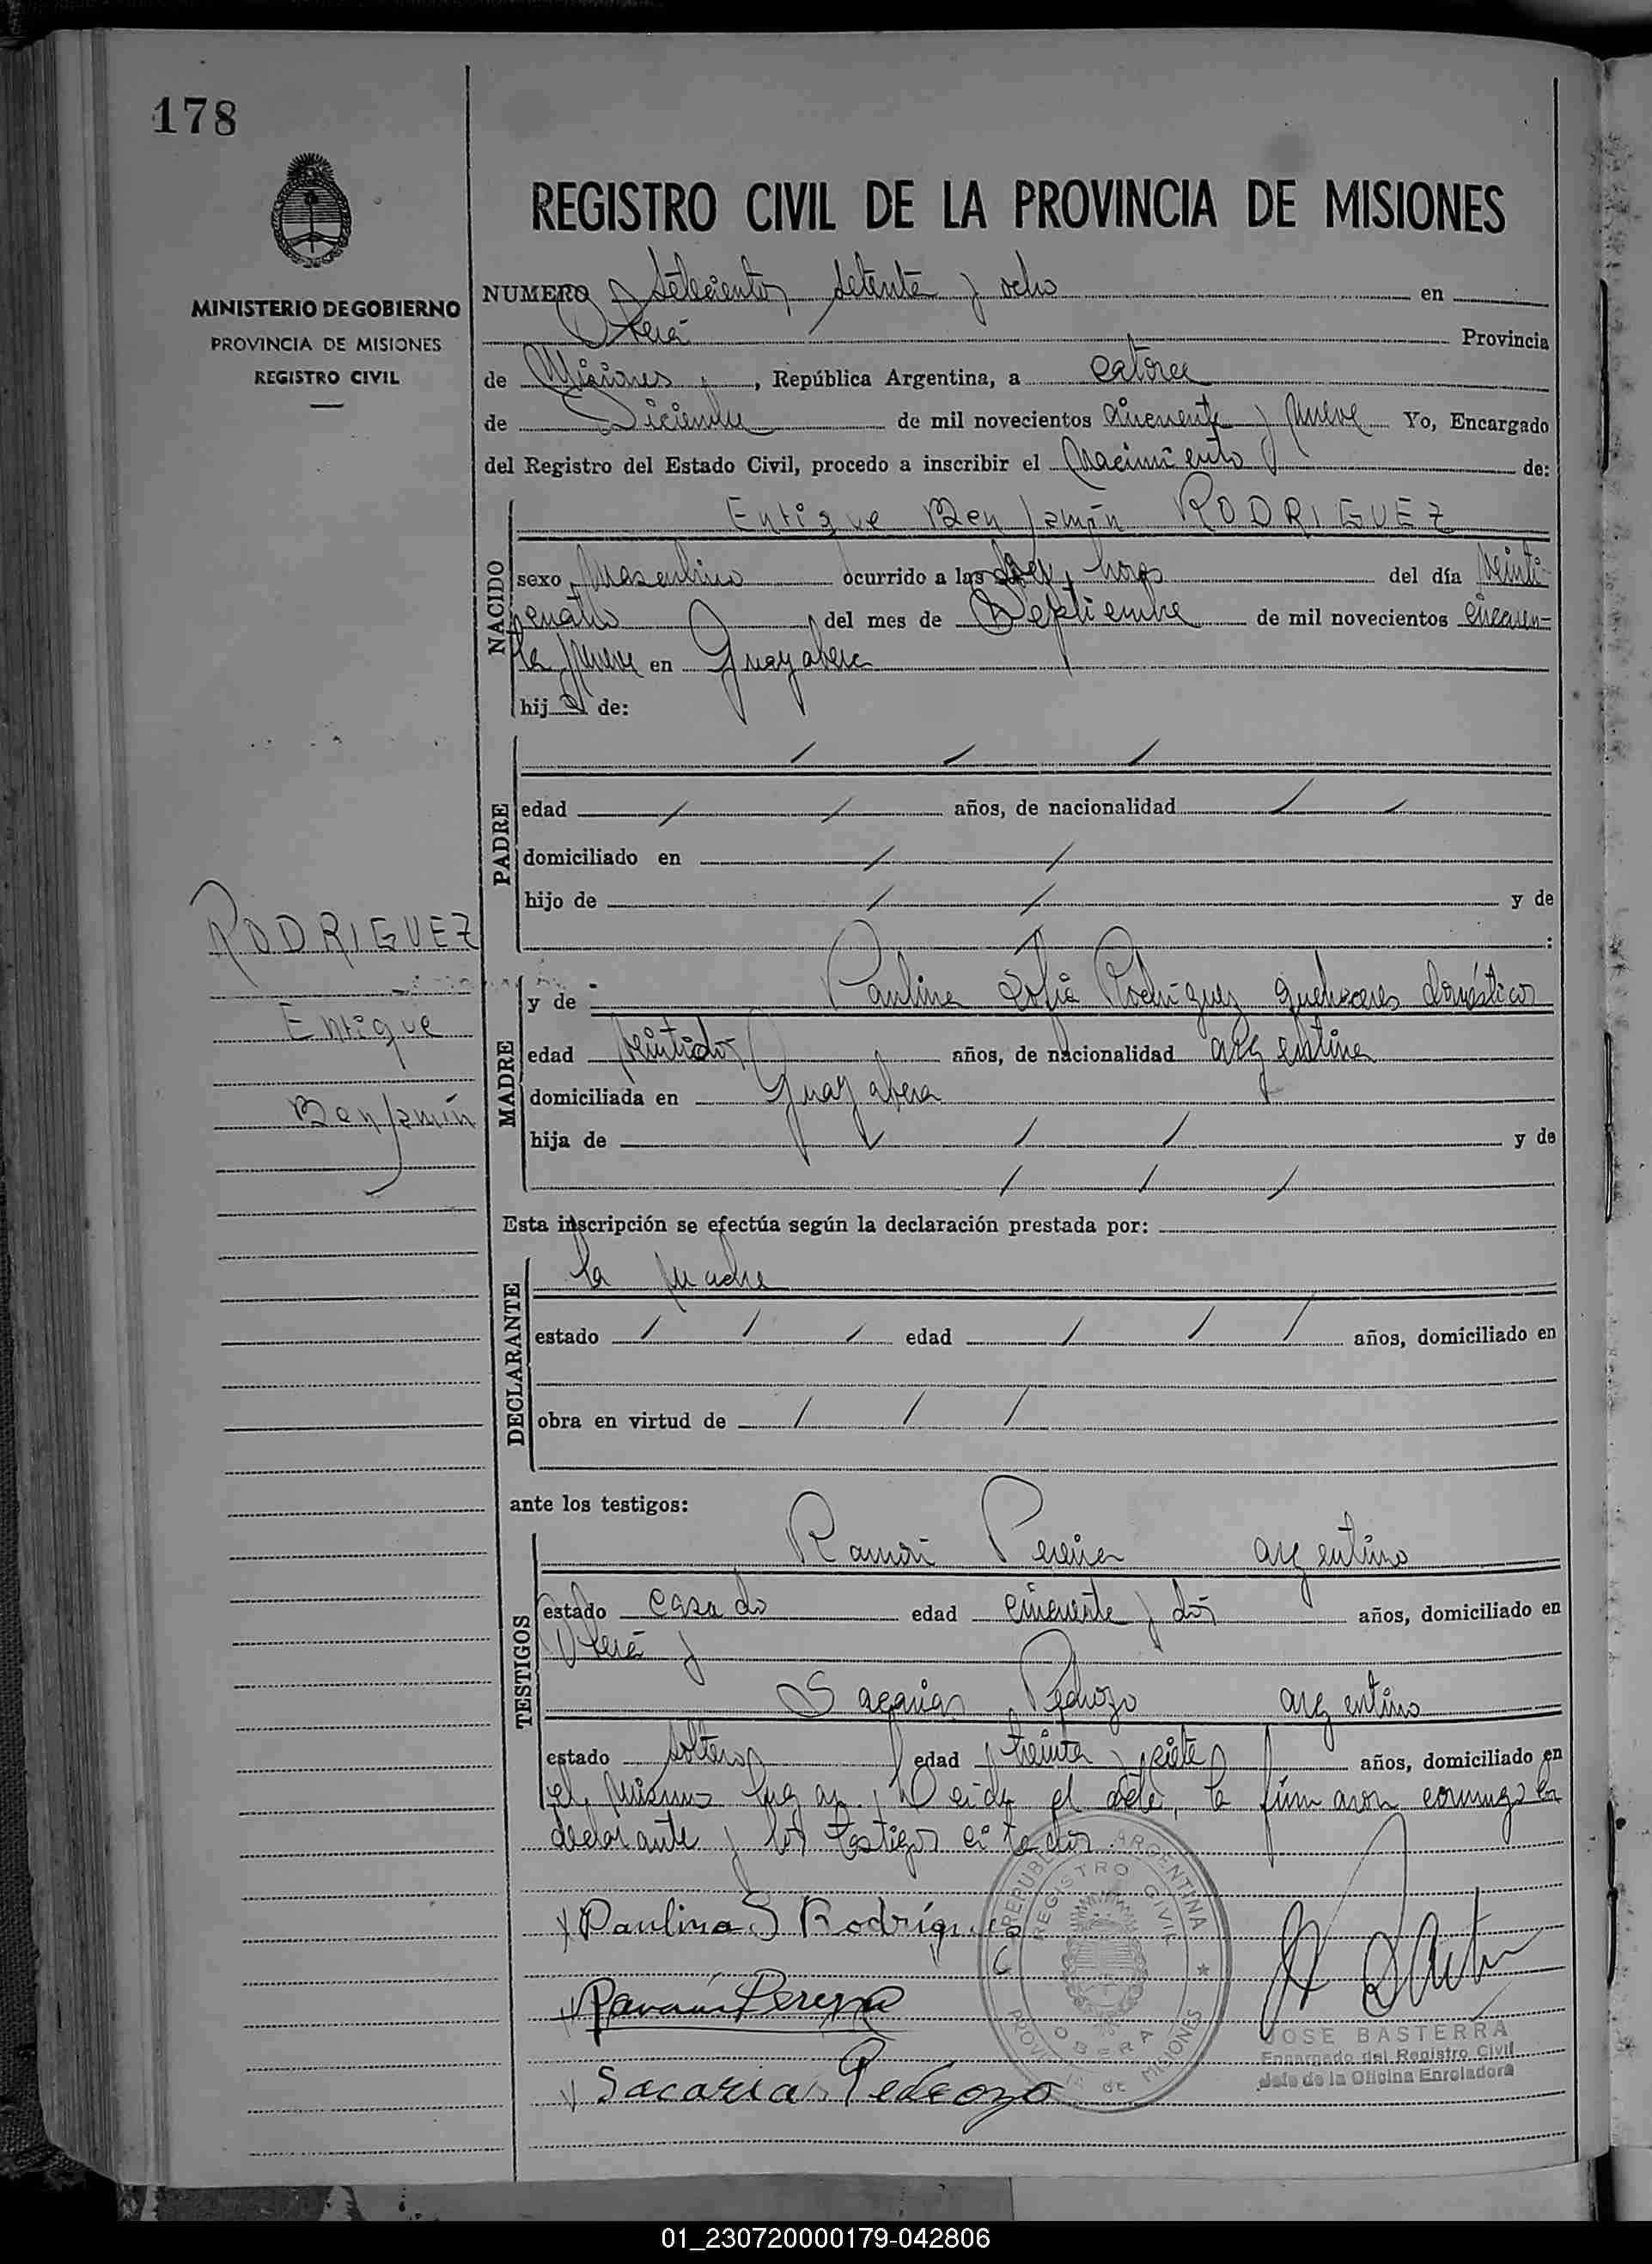 178
REGISTRO CIVIL DE LA PROVINCIA DE MISIONES
MINISTERIO DE GOBIERNO
PROVINCIA DE MISIONES
REGISTRO CIVIL
NUMERO Setecientos setenta y ocho en
Oberá Provincia
de Misiones, República Argentina, a catorce
de Diciembre de mil novecientos cincuenta y nueve Yo, Encargado
del Registro del Estado Civil, procedo a inscribir el Nacimiento de:
NACIDO
Enrique Benjamín RODRIGUEZ
sexo Masculino ocurrido a las horas del día veinti-
cuatro del mes de Septiembre de mil novecientos cincuen-
ta nueve en Guayabera
hijo de:
PADRE
/ / /
edad / / años, de nacionalidad / /
domiciliado en / /
hijo de / / y de
:
RODRIGUEZ
Enrique
Benjamín
MADRE
y de Paulina Sofia Rodríguez quehaceres domésticos
edad veintidos años, de nacionalidad argentina
domiciliada en Guayabera
hija de / / / y de
/ / /
Esta inscripción se efectúa según la declaración prestada por:
DECLARANTE
la madre
estado / / / edad / / / años, domiciliado en
obra en virtud de / / /
ante los testigos:
TESTIGOS
Ramón Pereira argentino
estado casado edad cincuenta y dos años, domiciliado en
Oberá y
Sacarías Pedrozo argentino
estado soltero edad treinta y siete años, domiciliado en
el mismo lugar. Leída el acta, la firmaron conmigo la
declarante y los testigos citados.
Paulina S Rodrígues
Ramón Pereyra
Sacarias Pedrozo
REPUBLICA ARGENTINA
REGISTRO CIVIL
OBERA
PROVINCIA DE MISIONES
JOSE BASTERRA
Encargado del Registro Civil
Jefe de la Oficina Enroladora
01_230720000179-042806